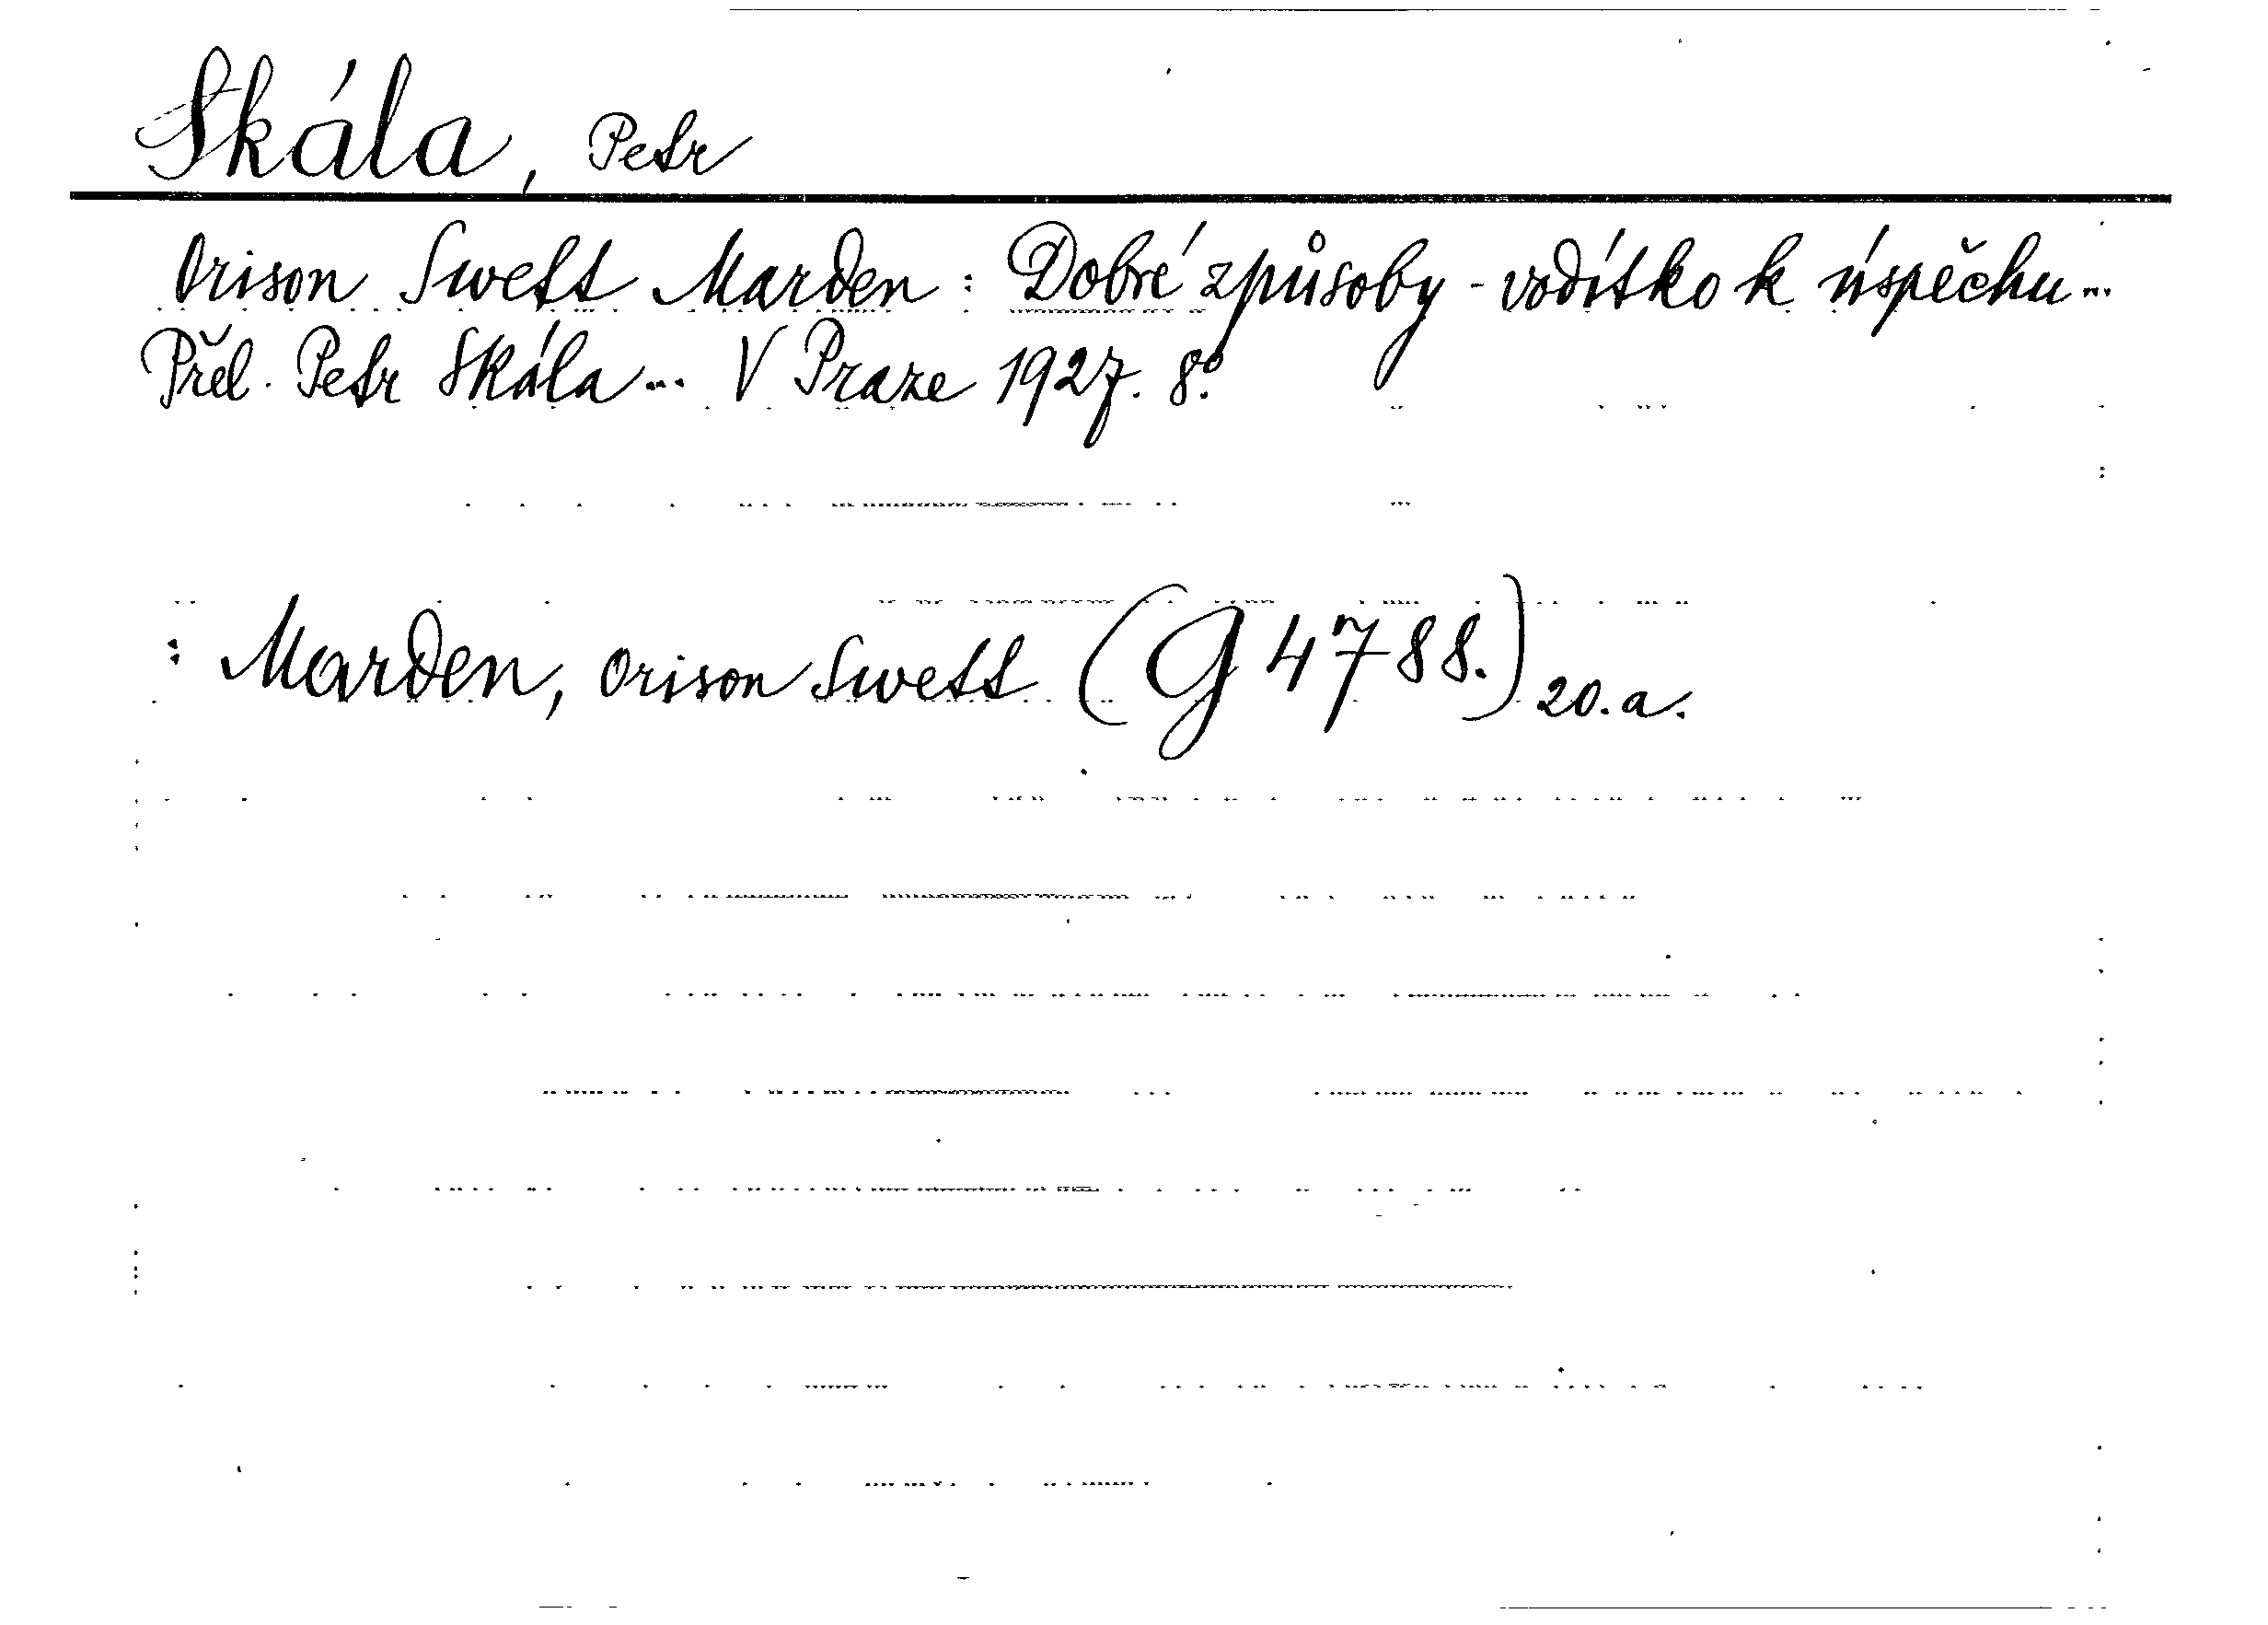 Skála, Petr
Orison Swett Marden : Dobré způsoby - vodítko k úspěchu...
Přel. Petr Skála... V Praze 1927. 8°.
: Marden, Orison Swett (G 4788.) 20.a.